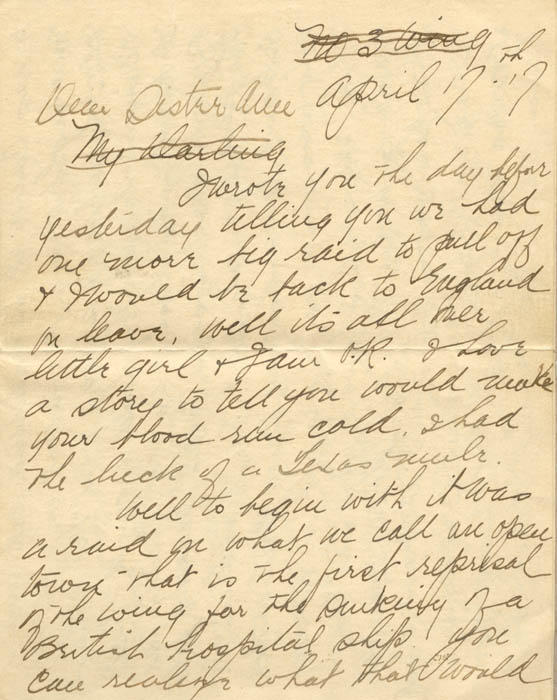 No 3 Wing
April 17th '17
Dear Sister Ame
My Darling
I wrote you the day before
yesterday telling you we had
one more big raid to pull off
& I would be back to England
on leave, well its all over
little girl & I am O.K. I have
a story to tell you would make
your blood run cold. I had
the luck of a Texas mule.
Well to begin with it was
a raid on what we call an open
town that is the first reprisal
of the wing for the sinking of a
British hospital ship. You
can realize what that would